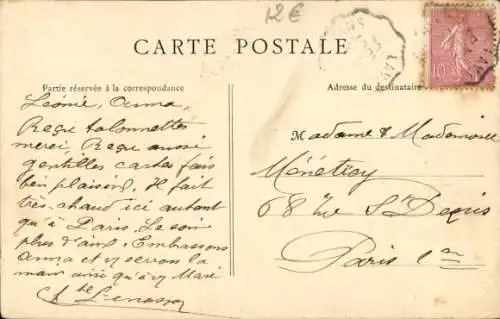 12 €
CARTE POSTALE
Partie réservée à la correspondance
Adresse du destinataire
Léonie, Anna
Reçu talonnettes
merci, Reçu aussi
gentilles cartes fais
bien plaisir. Il fait
très chaud ici autant
qu'à Paris. Le soir
plus d'air. Embrassons
Anna et serrons la
main ainsi qu'à Marie
Madame & Mademoiselle
Ménétroy
68 rue St Denis
Paris 1er
10